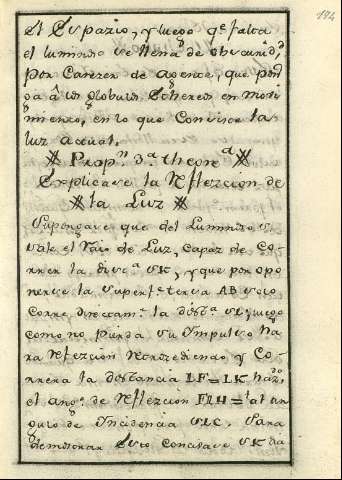 124
el Espazio, y luego qe falta
el luminoso se llena de obscuridd
por carecer de agente, que pon
ga â los globulos Ethereos en movi
miento, en lo que consiste la
luz actual.
Propn. 3a theorea
Explicase la Reflexcion de
la Luz
Supongase que del Luminoso S.
sale el Raio de Luz, capaz de Co-
rrer la disa SK, y que por opo
nerse la superfe tersa AB solo
corre directamte la dista SL, luego
como no pierda su impulso ha
ra Reflexcion retrocediendo y Co-
rrera la distancia LF=LK hazdo
el ango de Reflexcion FLH= al an
gulo de Incidencia SLC. Para
demostrar Esto concivase SK